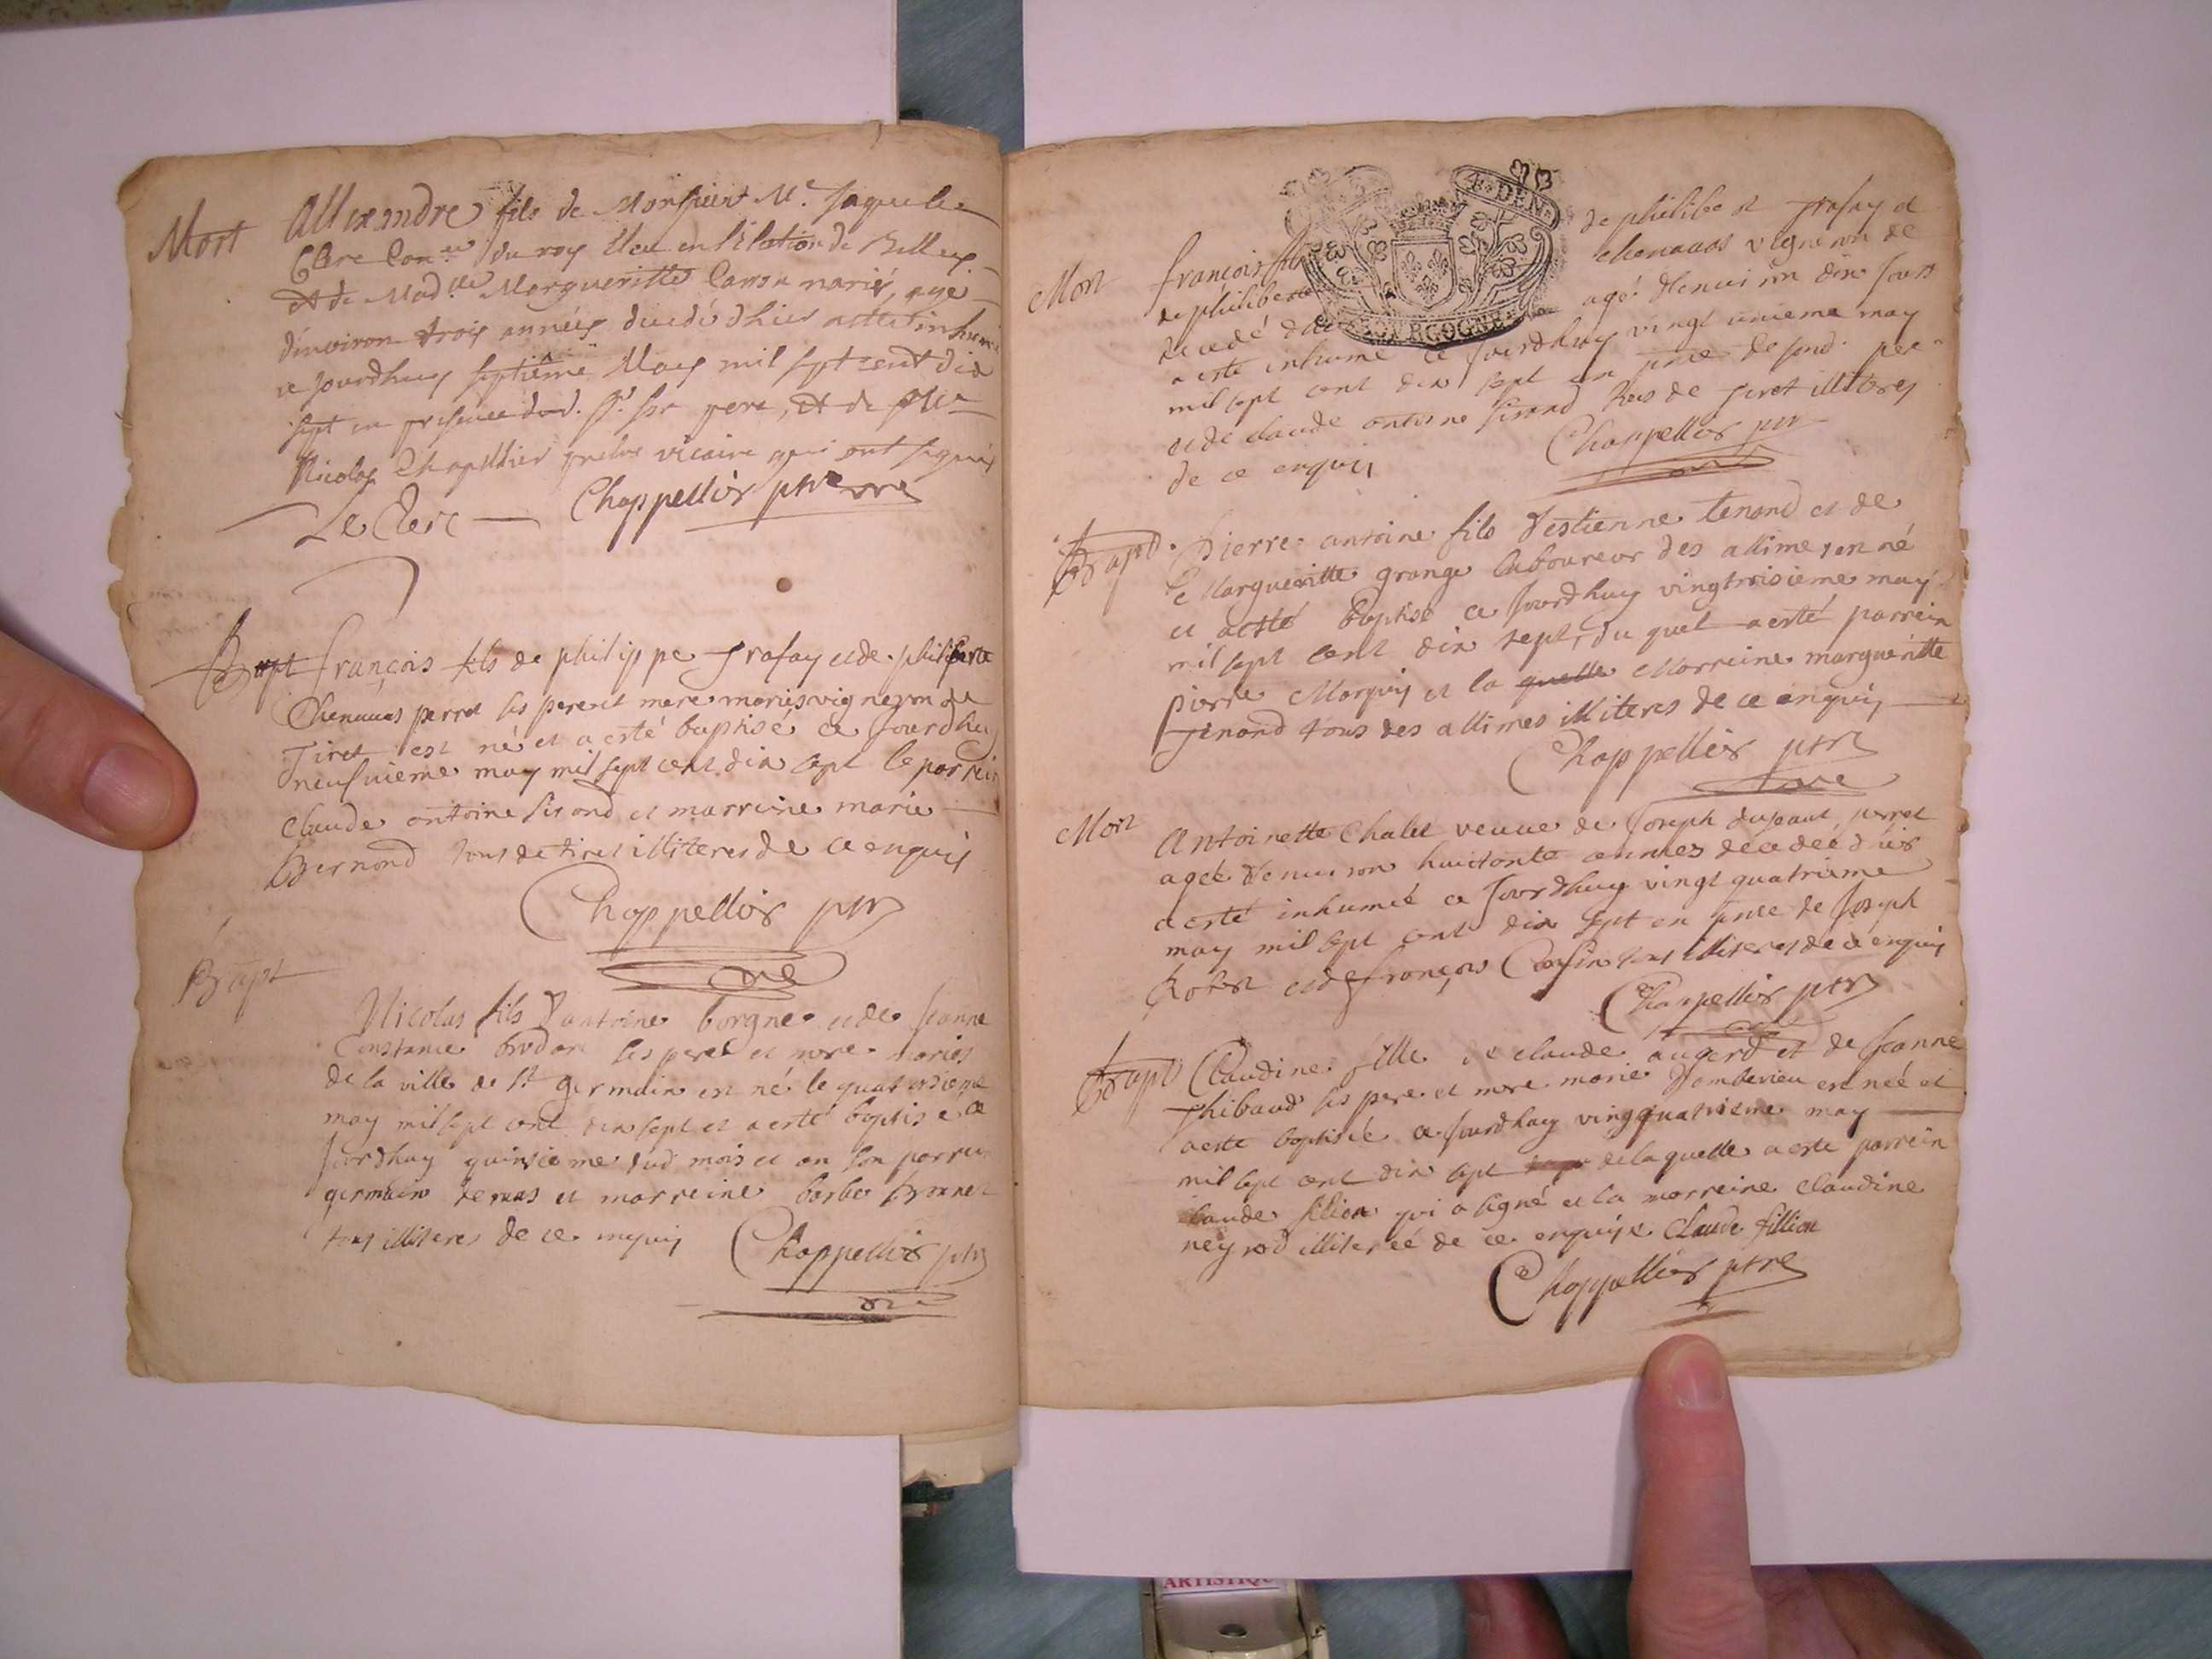 Mort
Allexandre fils de Monsieur Mr. Jaque le
Clerc Con.er du roy Eleu en l'Election de Belley
et de Mad.lle Margueritte mariés, agé
d'environ trois années decedé d'hier a esté inhumé
ce jourdhuy septiême May mil sept cent dix
sept en presence dud. Sr. son pere, et de Mre
Nicolas Chapellier prebre vicaire qui ont signés
Le Clerc Chappellier ptre
Bapt françois fils de philippe Trafay et de philiberte
Chenauas perret ses pere et mere mariés vigneron de
Tiret est né et a esté baptisé ce jourdhuy
neufuieme may mil sept cent dix sept le parrein
Claude antoine Sirand et marreine marie
Bernond tous de tiret illiteres de ce enquis
Chappellier ptre
Bapt
Nicolas fils d'antoine borgne et de Jeanne
Constance ses pere et mere mariés
de la ville de St germain est né le quatordieme
may mil sept cent dix sept et a esté baptisé ce
jourdhuy quinsieme dud mois et an son parrein
germain et marreine barbe
tous illiteres de ce enquis Chappellier ptre
F. DEN.
BOURGOGNE
Mort
françois fils de philibert Trafay et
de philiberte chenauas vigneron de
decedé agé d'enuiron dix jours
a esté inhumé ce jourdhuy vingt unieme may
mil sept cent dix sept en pnce de sond. pere
et de claude antoine Sirand de Tiret illiteres
de ce enquis Chappellier ptre
Bapt. Pierre antoine fils d'estienne tenand et de
Margueritte grange laboureur des allimes est né
et a esté baptisé ce jourdhuy vingtroisieme may
mil sept cent dix sept, du quel a esté parrein
pierre Marquis et la quelle Marreine margueritte
Tenand tous des allimes illiteres de ce enquis
Chappellier ptre
Mort
Antoinette Chalet veuue de Joseph perret
agee d'enuiron huictante années decedée d'hier
a esté inhumée ce jourdhuy vingt quatrieme
may mil sept cent dix sept en pnce de Joseph
et de françois illiteres de ce enquis
Chappellier ptre
Bapt Claudine fille de claude augerd et de Jeanne
Thibaud ses pere et mere mariés d'amberieu est née et
a esté baptisée ce jourdhuy vingquatrieme may
mil sept cent dix sept de laquelle a esté parrein
claude fillion qui a signé et la marreine claudine
neyrod illiterée de ce enquise Claude fillion
Chappellier ptre
ARTISTIQU